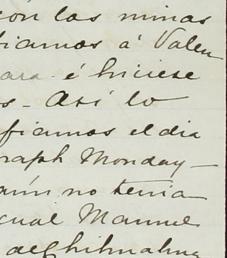 ción las minas
fiamos á Valen
para é hiciese
os - Así lo
fiamos el dia
graph Monday -
aún no tenia
cual Manuel
de Chihuahua